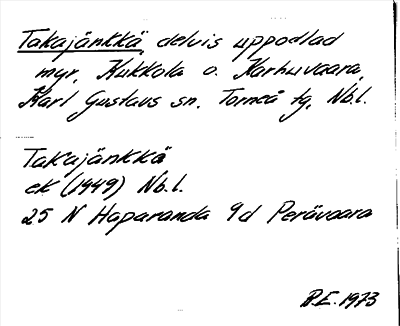 Takajänkkä, delvis uppodlad
myr, Kukkola o. Karhuvaara,
Karl Gustavs sn. Torneå tg, Nb.l.
Takajänkkä
ek (1949) Nb.l.
25 N Haparanda 9d Perävaara
R.E. 1973